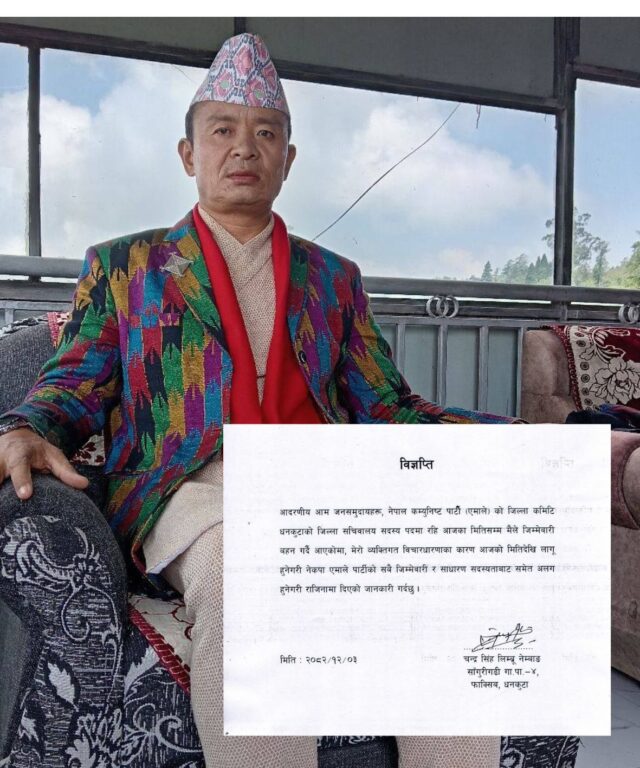 विज्ञप्ति
आदरणीय आम जनसमुदायहरू, नेपाल कम्युनिष्ट पार्टी (एमाले) को जिल्ला कमिटि
धनकुटाको जिल्ला सचिवालय सदस्य पदमा रहि आजका मितिसम्म मैले जिम्मेवारी
बहन गर्दै आएकोमा, मेरो व्यक्तिगत विचारधारणाका कारण आजको मितिदेखि लागू
हुनेगरी नेकपा एमाले पार्टीको सबै जिम्मेवारी र साधारण सदस्यताबाट समेत अलग
हुनेगरी राजिनामा दिएको जानकारी गर्दछु ।
मिति : २०८२/१२/०३
चन्द्र सिंह लिम्बू नेम्बाङ
साँगुरीगढी गा.पा.-४,
फाक्सिब, धनकुटा